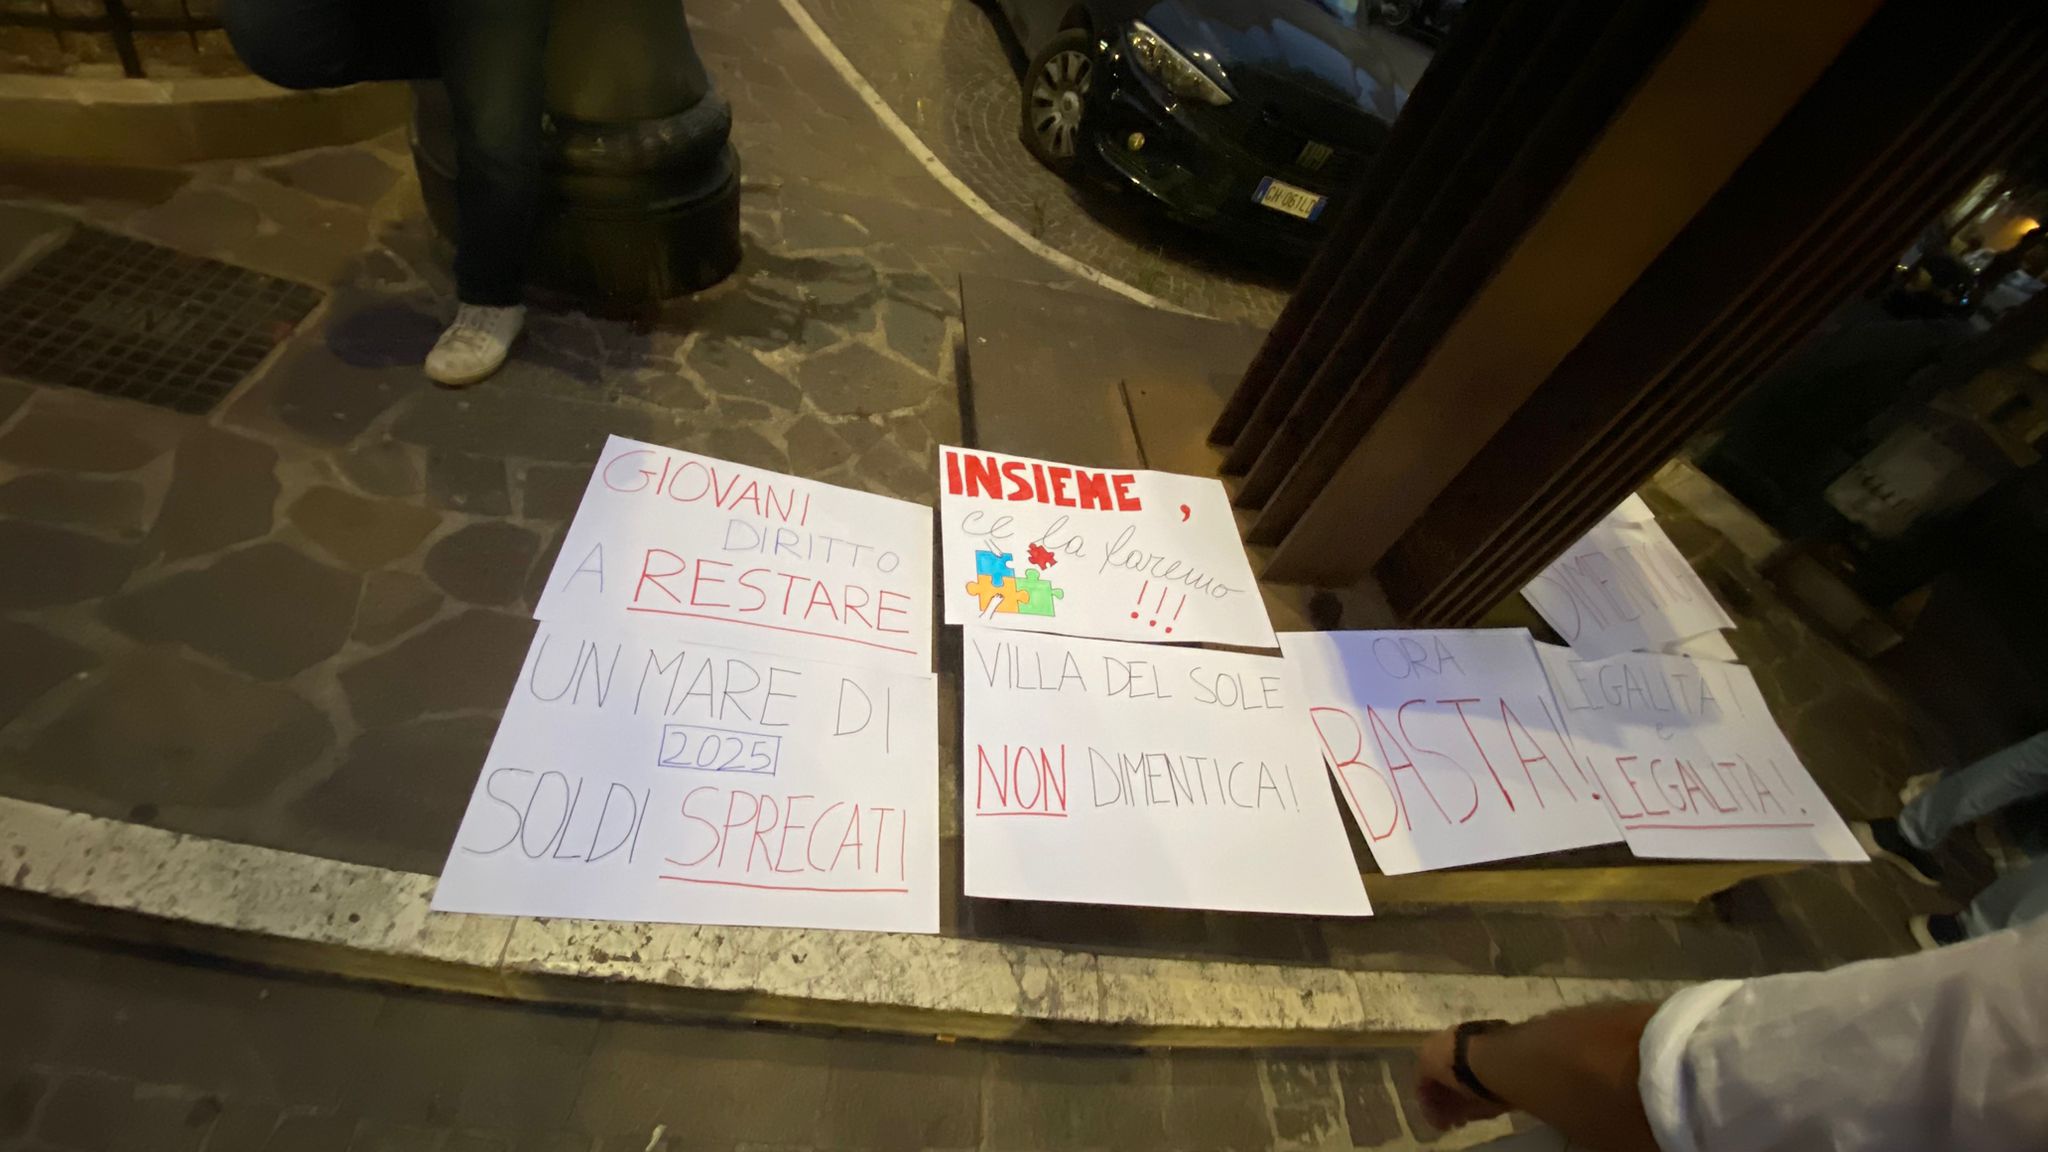 GIOVANI
DIRITTO
A RESTARE
INSIEME,
ce la faremo
!!!
UN MARE DI
2025
SOLDI SPRECATI
VILLA DEL SOLE
NON DIMENTICA!
ORA
BASTA!
LEGALITÀ!
e
LEGALITÀ!
FIAT
GH·061LD